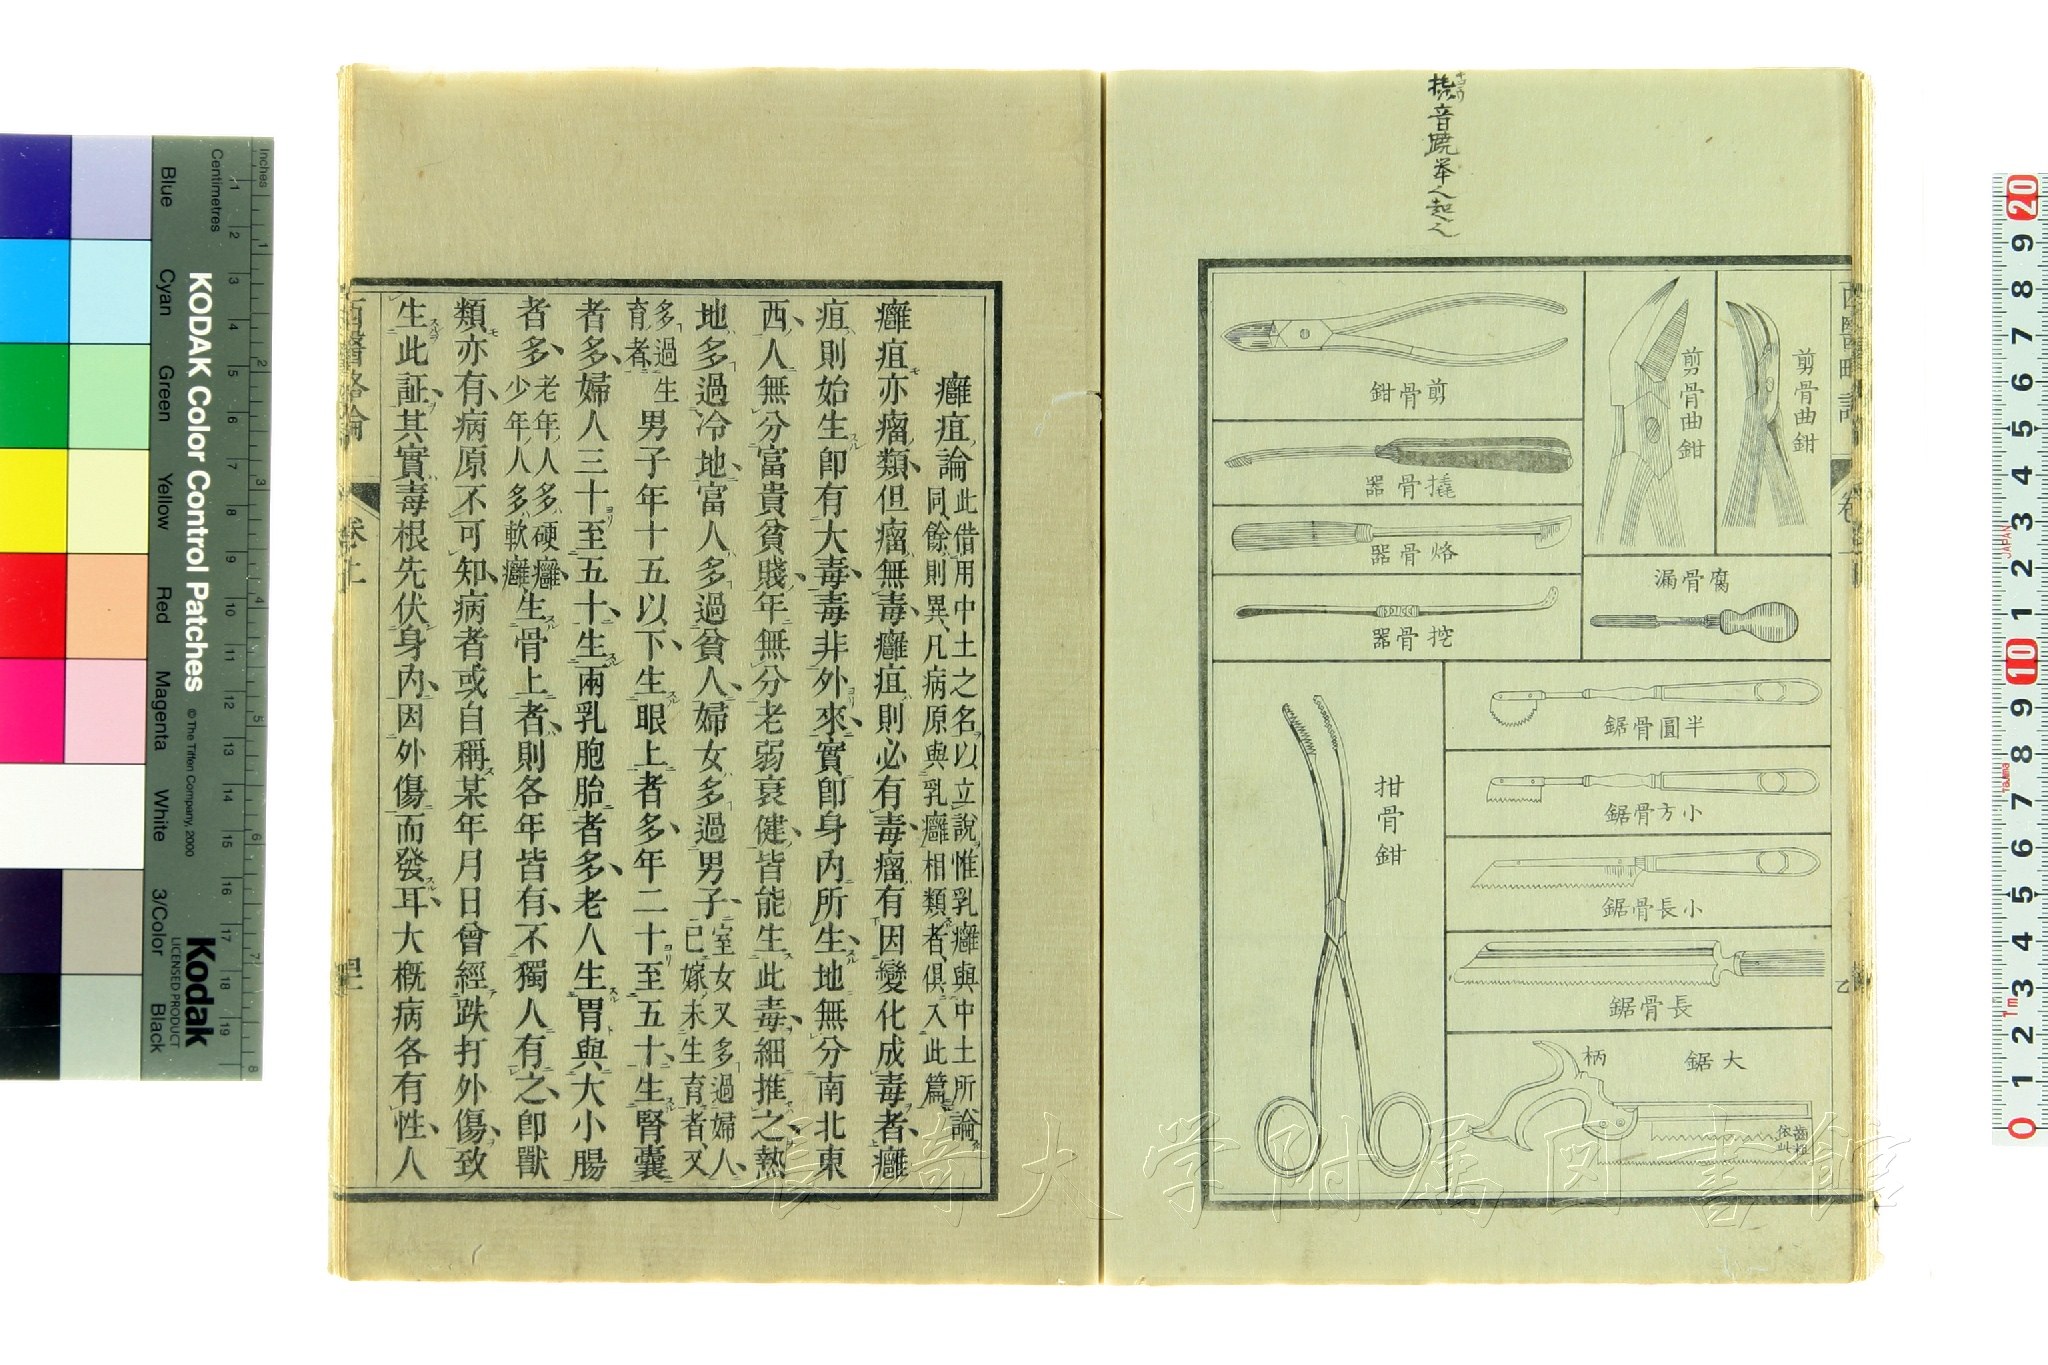 撬音蹺舉也起也
西醫略論
剪骨曲鉗
剪骨曲鉗
剪骨鉗
撬骨器
烙骨器
挖骨器
腐骨漏
半圓骨鋸
小方骨鋸
小長骨鋸
長骨鋸
大鋸
柄
拑骨鉗
癰疽論此借用中土之名以立說惟乳癰與中土所論
同餘則異凡病原與乳癰相類者俱入此篇
癰疽亦瘤類但瘤無毒癰疽則必有毒瘤有因變化成毒者癰
疽則始生卽有大毒毒非外來實卽身內所生地無分南北東
西人無分富貴貧賤年無分老弱衰健皆能生此毒細推之熱
地多過冷地富人多過貧人婦女多過男子室女又多過婦人
已嫁未生育者又
多過生
育者男子年十五以下生眼上者多年二十至五十生腎囊
者多婦人三十至五十生兩乳胞胎者多老人生胃與大小腸
者多老年人多硬癰
少年人多軟癰生骨上者則各年皆有不獨人有之卽獸
類亦有病原不可知病者或自稱某年月日曾經跌打外傷致
生此証其實毒根先伏身內因外傷而發耳大概病各有性人
西醫略論
卷上
KODAK Color Control Patches
© The Tiffen Company, 2000
Kodak
LICENSED PRODUCT
Inches
Centimetres
Blue
Cyan
Green
Yellow
Red
Magenta
White
3/Color
Black
1 2 3 4 5 6 7 8 9 10 11 12 13 14 15 16 17 18 19
1 2 3 4 5 6 7 8
20 9 8 7 6 5 4 3 2 1 10 9 8 7 6 5 4 3 2 1 0
JAPAN
長崎大学附属図書館